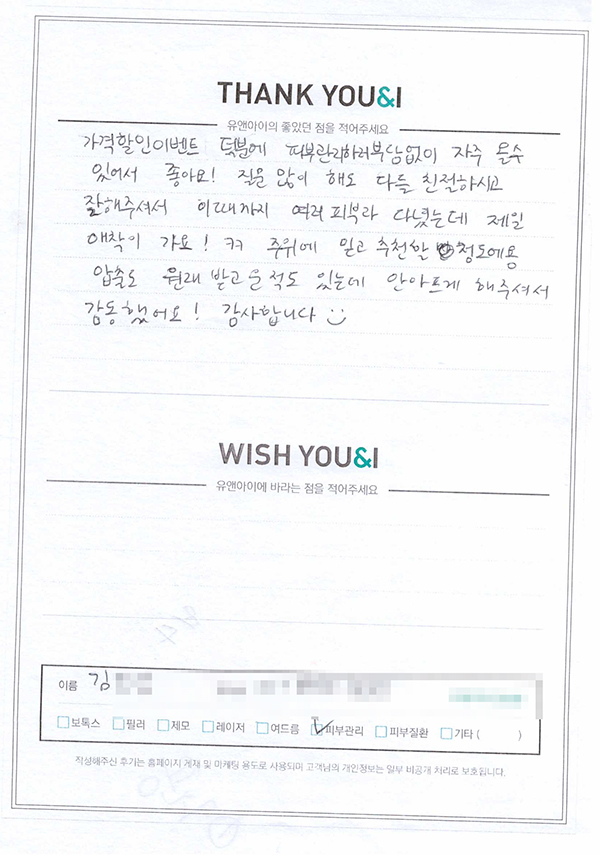 THANK YOU&I
유앤아이의 좋았던 점을 적어주세요
가격할인이벤트 덕분에 피부관리하러부담없이 자주 올수
있어서 좋아요! 질문 많이 해도 다들 친절하시고
잘해주셔서 이때까지 여러 피부과 다녔는데 제일
애착이 가요! ㅋㅋ 주위에 믿고 추천할 정도에용
압출도 원래 받고 운적도 있는데 안아프게 해주셔서
감동했어요! 감사합니다
WISH YOU&I
유앤아이에 바라는 점을 적어주세요
이름 김
보톡스 필러 제모 레이저 여드름 피부관리 피부질환 기타 ( )
작성해주신 후기는 홈페이지 게재 및 마케팅 용도로 사용되며 고객님의 개인정보는 일부 비공개 처리로 보호됩니다.